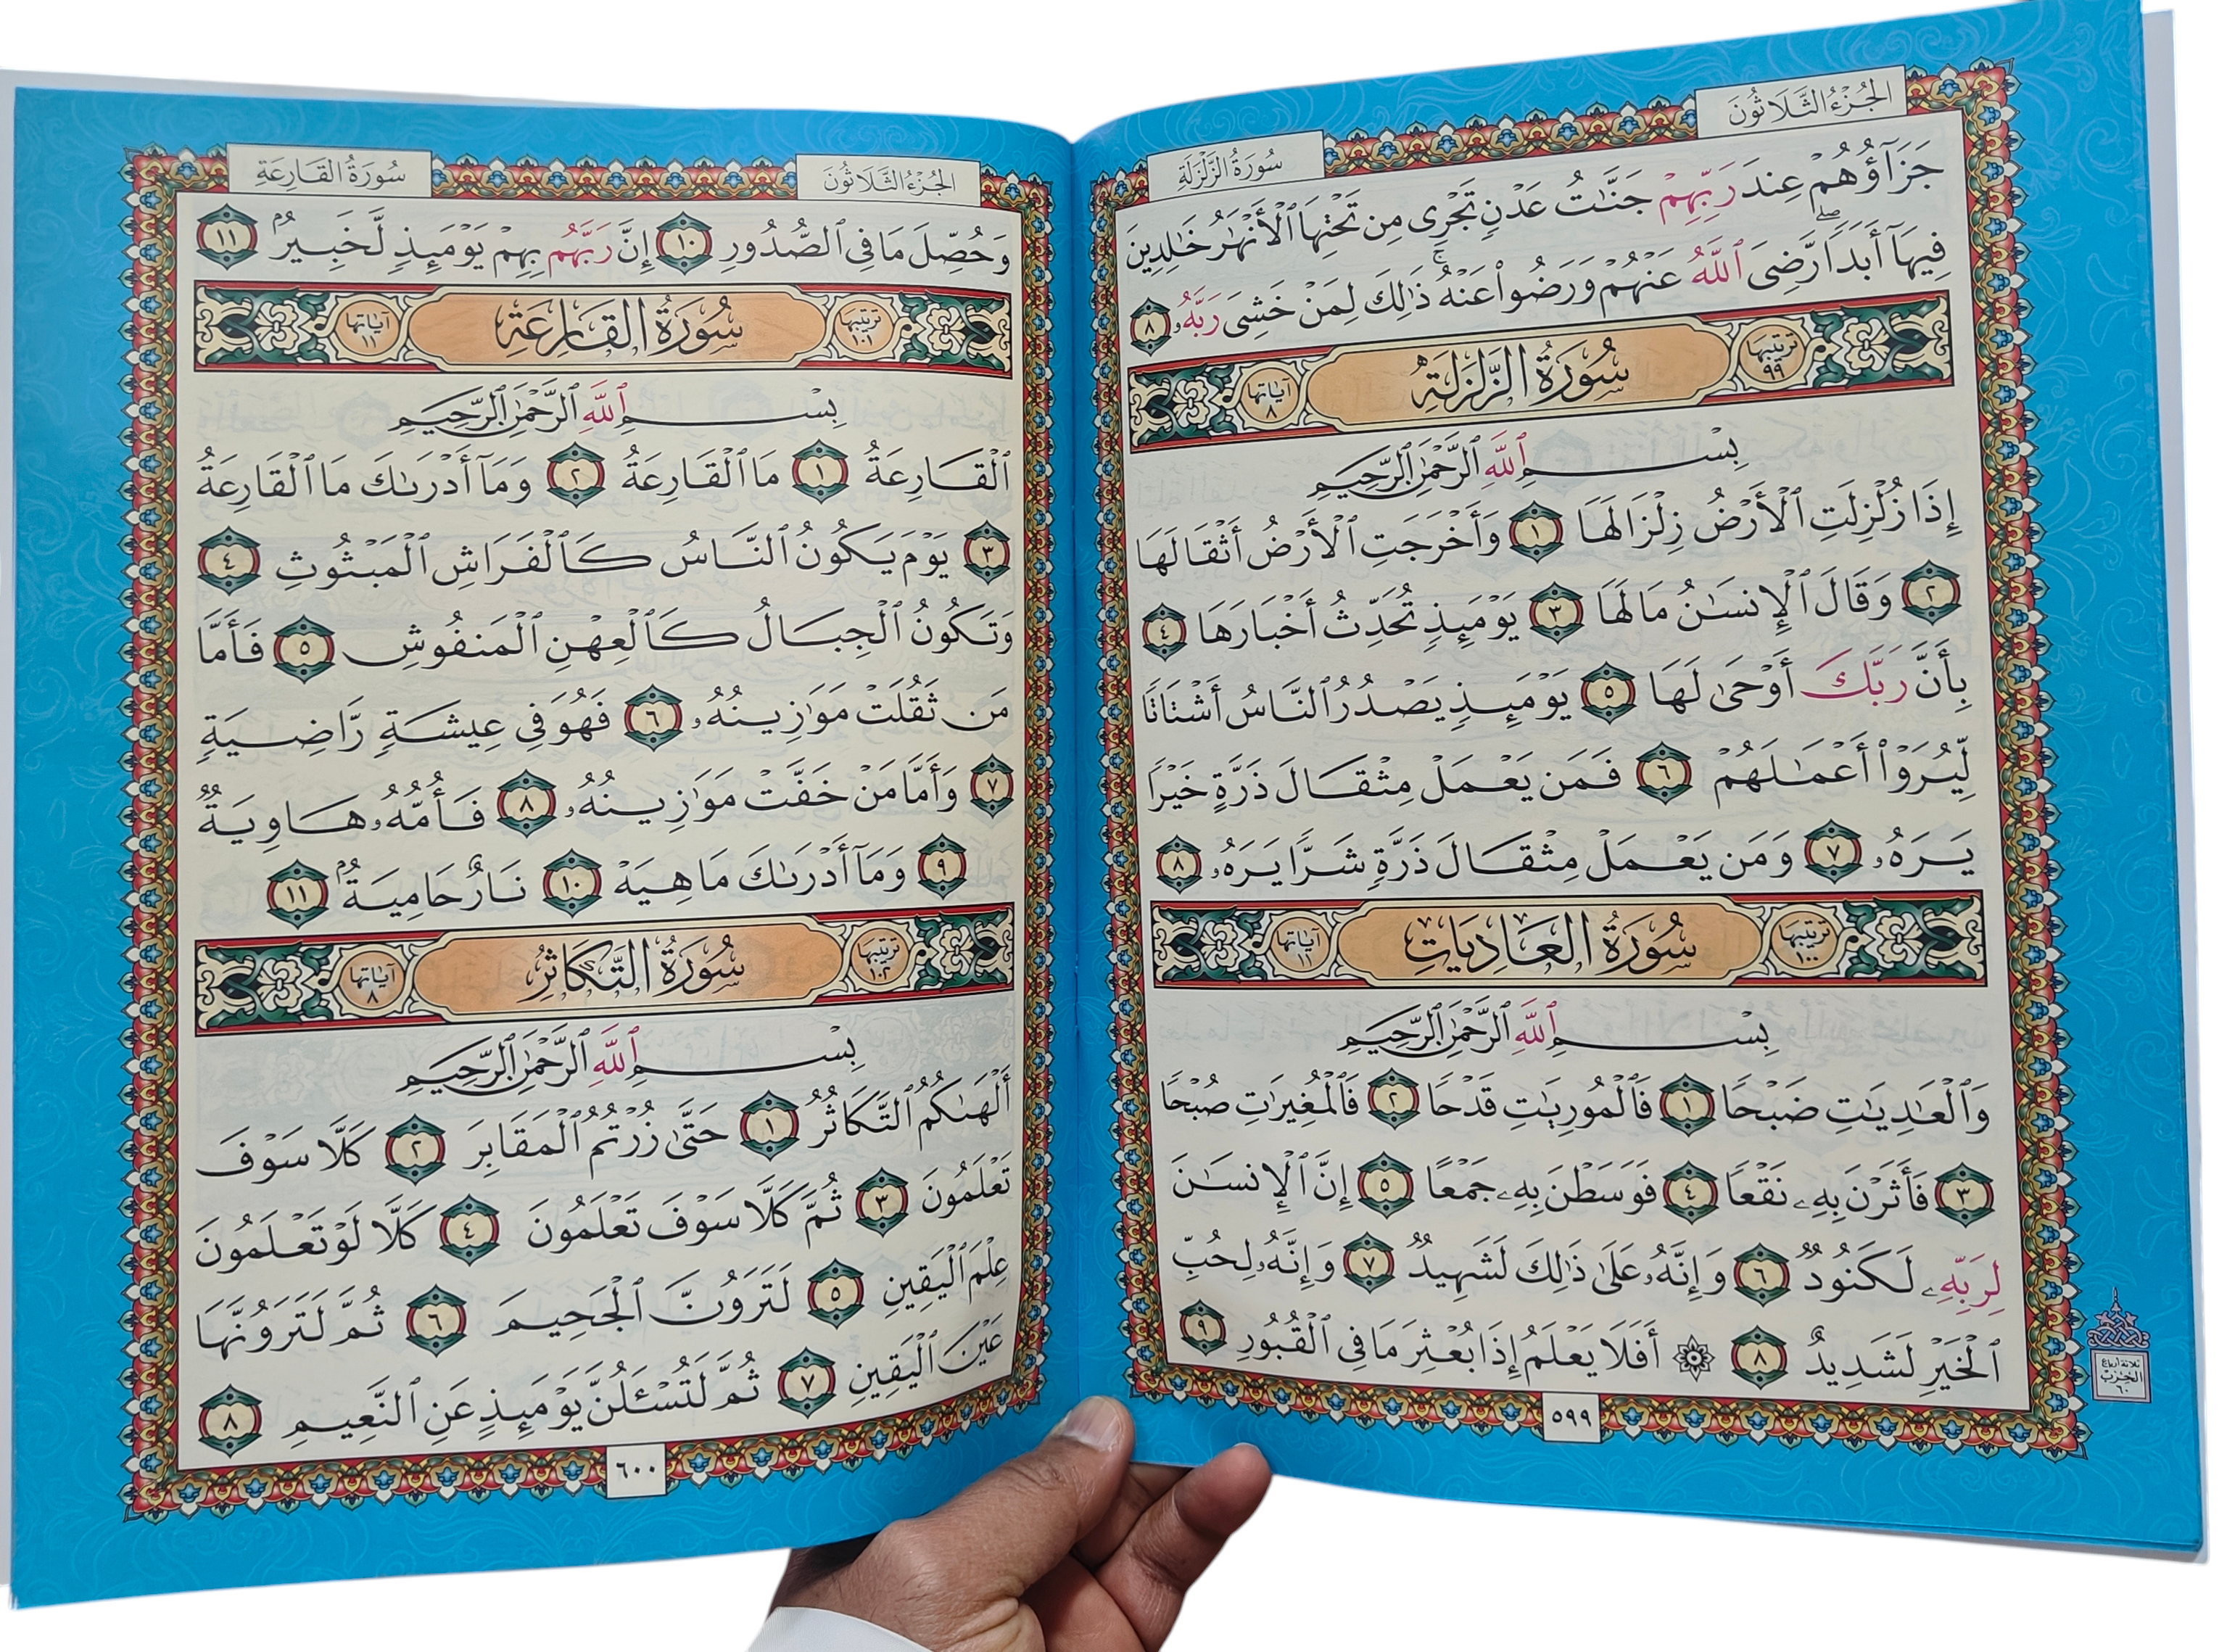 الجُزْءُ الثَّلَاثُونَ
سُورَةُ الزَّلْزَلَةِ
جَزَآؤُهُمْ عِندَ رَبِّهِمْ جَنَّٰتُ عَدْنٍ تَجْرِى مِن تَحْتِهَا ٱلْأَنْهَٰرُ خَٰلِدِينَ
فِيهَآ أَبَدًا ۖ رَّضِىَ ٱللَّهُ عَنْهُمْ وَرَضُوا۟ عَنْهُ ۚ ذَٰلِكَ لِمَنْ خَشِىَ رَبَّهُۥ ٨
ترتيبها ٩٩ سُورَةُ الزَّلْزَلَةِ آياتها ٨
بِسْمِ ٱللَّهِ ٱلرَّحْمَٰنِ ٱلرَّحِيمِ
إِذَا زُلْزِلَتِ ٱلْأَرْضُ زِلْزَالَهَا ١ وَأَخْرَجَتِ ٱلْأَرْضُ أَثْقَالَهَا
٢ وَقَالَ ٱلْإِنسَٰنُ مَا لَهَا ٣ يَوْمَئِذٍ تُحَدِّثُ أَخْبَارَهَا ٤
بِأَنَّ رَبَّكَ أَوْحَىٰ لَهَا ٥ يَوْمَئِذٍ يَصْدُرُ ٱلنَّاسُ أَشْتَاتًا
لِّيُرَوْا۟ أَعْمَٰلَهُمْ ٦ فَمَن يَعْمَلْ مِثْقَالَ ذَرَّةٍ خَيْرًا
يَرَهُۥ ٧ وَمَن يَعْمَلْ مِثْقَالَ ذَرَّةٍ شَرًّا يَرَهُۥ ٨
ترتيبها ١٠٠ سُورَةُ العَادِيَاتِ آياتها ١١
بِسْمِ ٱللَّهِ ٱلرَّحْمَٰنِ ٱلرَّحِيمِ
وَٱلْعَٰدِيَٰتِ ضَبْحًا ١ فَٱلْمُورِيَٰتِ قَدْحًا ٢ فَٱلْمُغِيرَٰتِ صُبْحًا
٣ فَأَثَرْنَ بِهِۦ نَقْعًا ٤ فَوَسَطْنَ بِهِۦ جَمْعًا ٥ إِنَّ ٱلْإِنسَٰنَ
لِرَبِّهِۦ لَكَنُودٌ ٦ وَإِنَّهُۥ عَلَىٰ ذَٰلِكَ لَشَهِيدٌ ٧ وَإِنَّهُۥ لِحُبِّ
ٱلْخَيْرِ لَشَدِيدٌ ٨ ۞ أَفَلَا يَعْلَمُ إِذَا بُعْثِرَ مَا فِى ٱلْقُبُورِ ٩
ثلاثة أرباع
الحزب
٦٠
٥٩٩
الجُزْءُ الثَّلَاثُونَ
سُورَةُ القَارِعَةِ
وَحُصِّلَ مَا فِى ٱلصُّدُورِ ١٠ إِنَّ رَبَّهُم بِهِمْ يَوْمَئِذٍ لَّخَبِيرٌۢ ١١
ترتيبها ١٠١ سُورَةُ القَارِعَةِ آياتها ١١
بِسْمِ ٱللَّهِ ٱلرَّحْمَٰنِ ٱلرَّحِيمِ
ٱلْقَارِعَةُ ١ مَا ٱلْقَارِعَةُ ٢ وَمَآ أَدْرَىٰكَ مَا ٱلْقَارِعَةُ
٣ يَوْمَ يَكُونُ ٱلنَّاسُ كَٱلْفَرَاشِ ٱلْمَبْثُوثِ ٤
وَتَكُونُ ٱلْجِبَالُ كَٱلْعِهْنِ ٱلْمَنفُوشِ ٥ فَأَمَّا
مَن ثَقُلَتْ مَوَٰزِينُهُۥ ٦ فَهُوَ فِى عِيشَةٍ رَّاضِيَةٍ
٧ وَأَمَّا مَنْ خَفَّتْ مَوَٰزِينُهُۥ ٨ فَأُمُّهُۥ هَاوِيَةٌ
٩ وَمَآ أَدْرَىٰكَ مَا هِيَهْ ١٠ نَارٌ حَامِيَةٌۢ ١١
ترتيبها ١٠٢ سُورَةُ التَّكَاثُرِ آياتها ٨
بِسْمِ ٱللَّهِ ٱلرَّحْمَٰنِ ٱلرَّحِيمِ
أَلْهَىٰكُمُ ٱلتَّكَاثُرُ ١ حَتَّىٰ زُرْتُمُ ٱلْمَقَابِرَ ٢ كَلَّا سَوْفَ
تَعْلَمُونَ ٣ ثُمَّ كَلَّا سَوْفَ تَعْلَمُونَ ٤ كَلَّا لَوْ تَعْلَمُونَ
عِلْمَ ٱلْيَقِينِ ٥ لَتَرَوُنَّ ٱلْجَحِيمَ ٦ ثُمَّ لَتَرَوُنَّهَا
عَيْنَ ٱلْيَقِينِ ٧ ثُمَّ لَتُسْـَٔلُنَّ يَوْمَئِذٍ عَنِ ٱلنَّعِيمِ ٨
٦٠٠